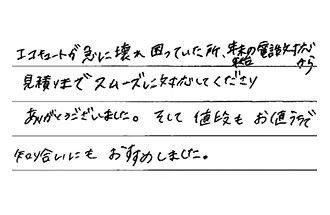 エコキュートが急に壊れ困っていた所、年末の電話対応から
見積りまでスムーズに対応してくださり
ありがとうございました。そして値段もお値うちで
知り合いにもおすすめしました。